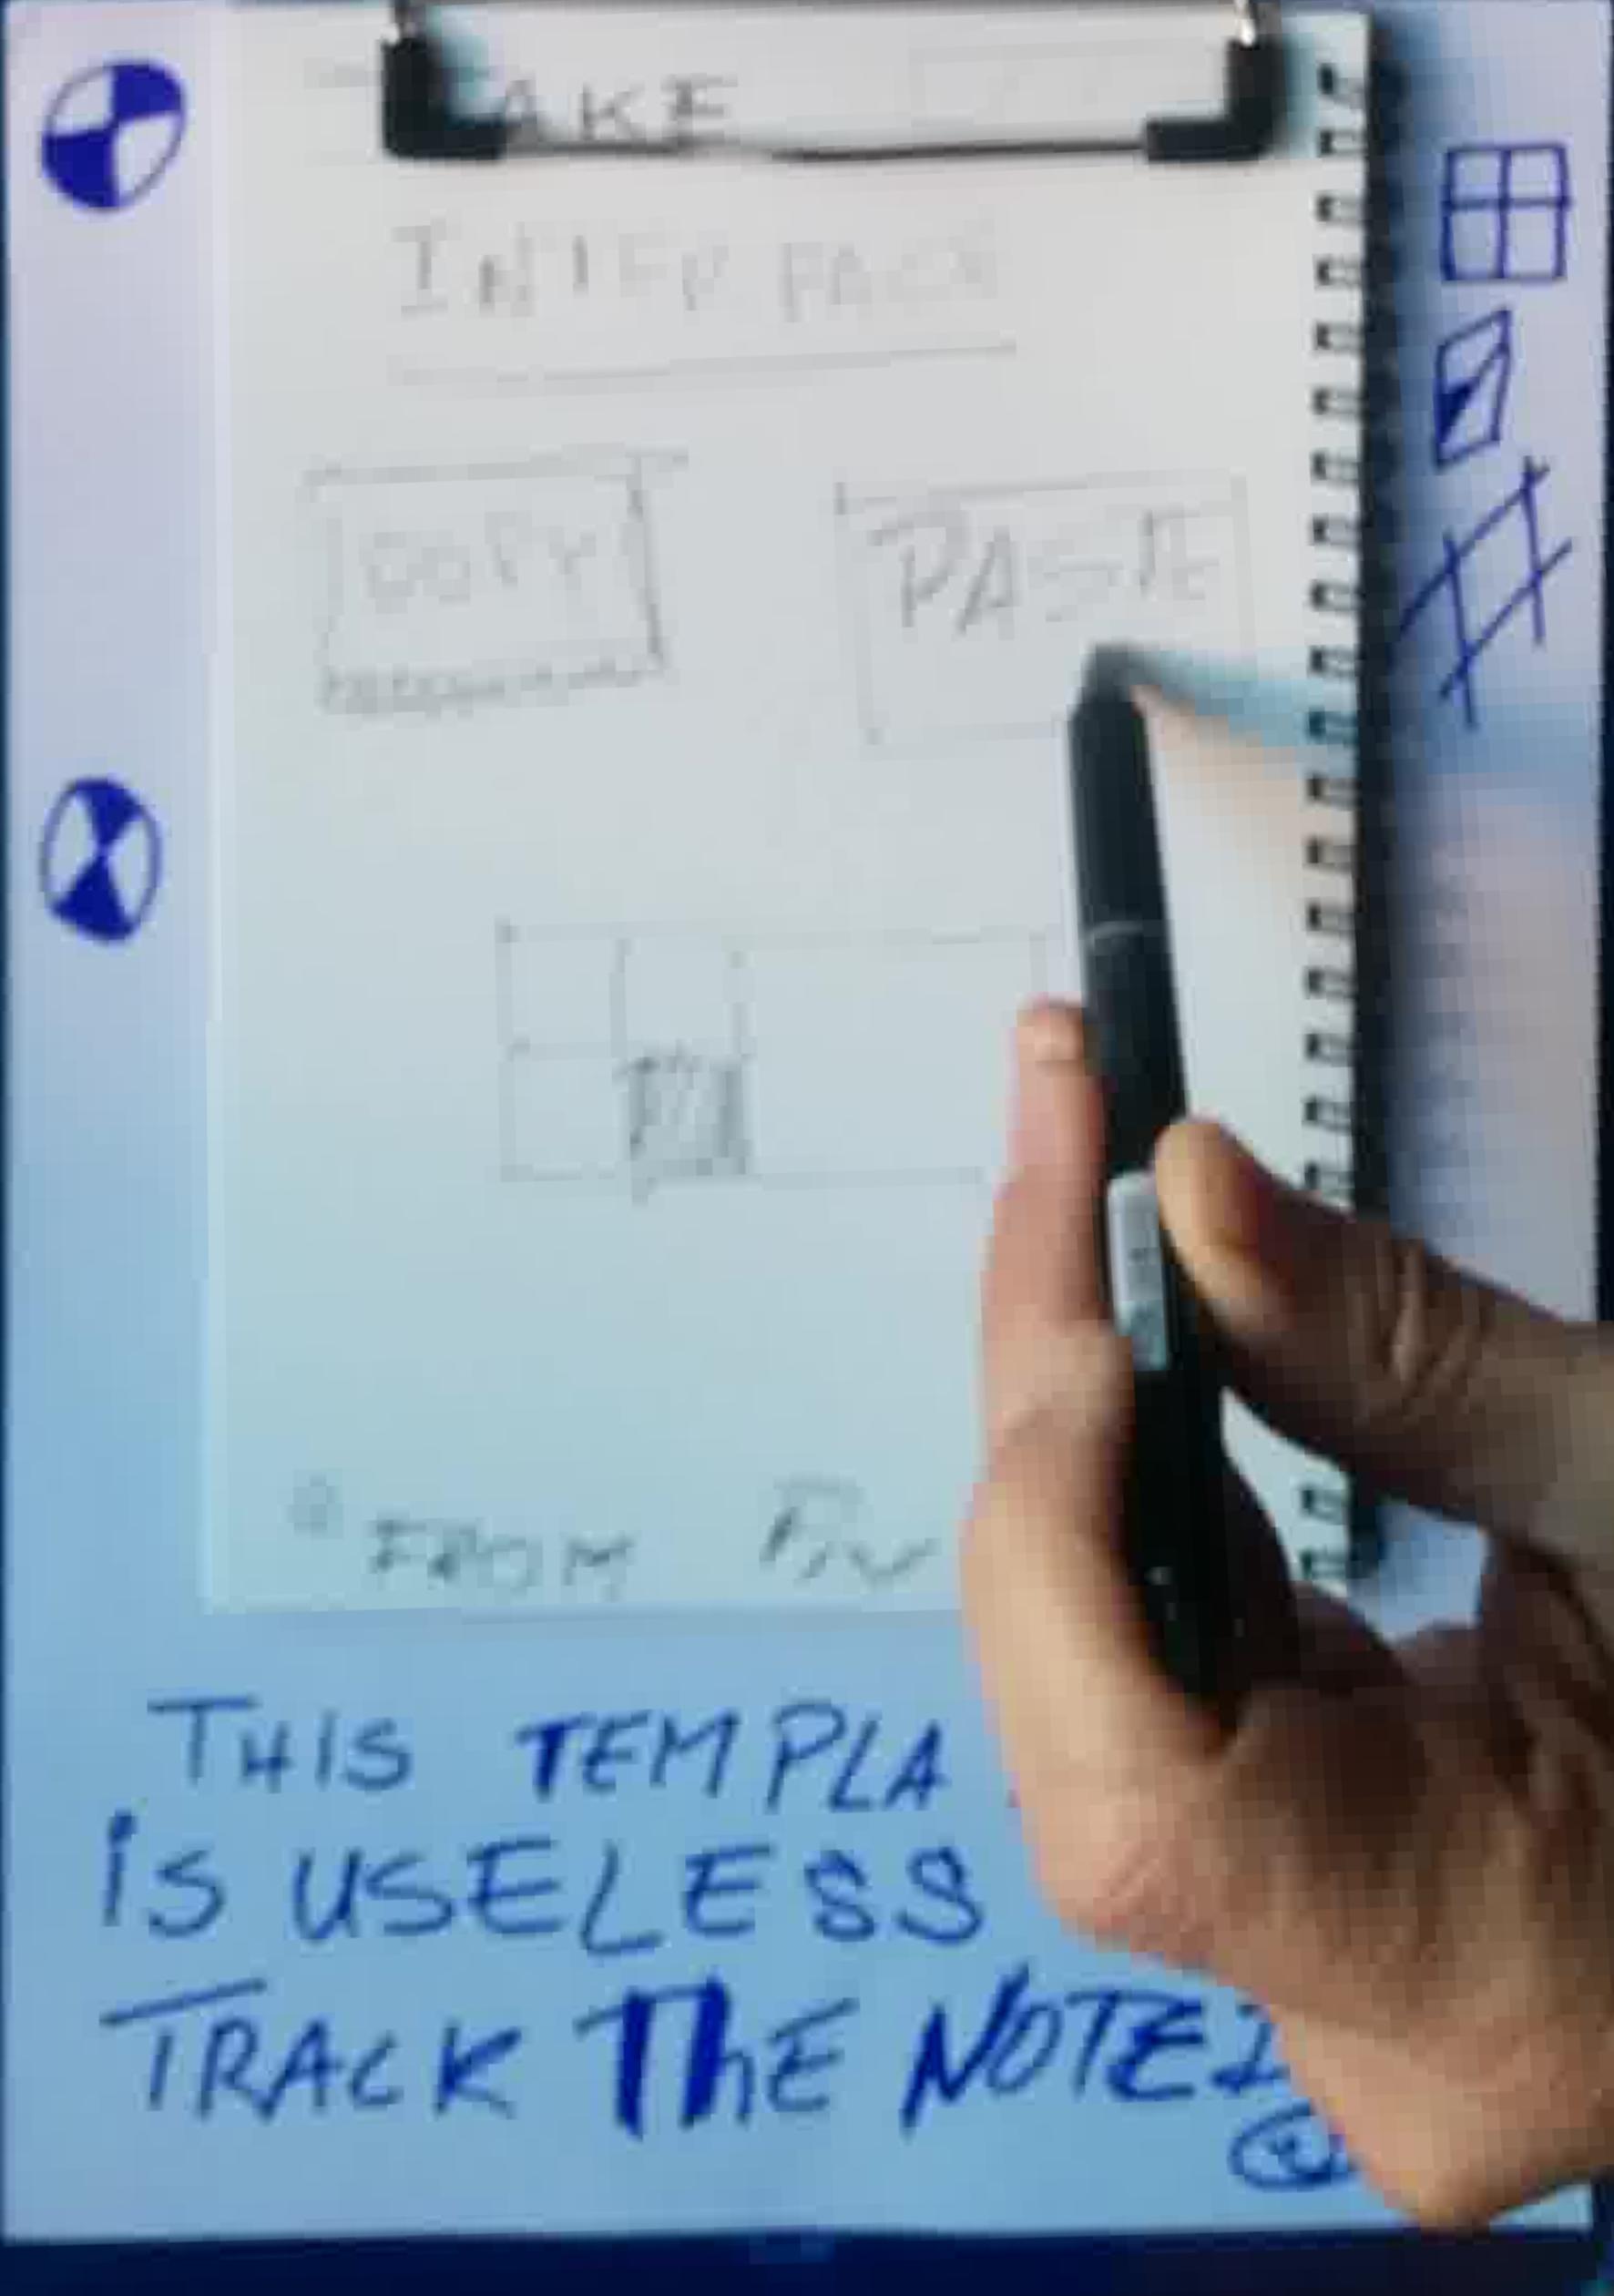 AKE
INTERFACE
COPY PASTE
FROM
THIS TEMPLA
iS USELESS
TRACK ThE NOTE